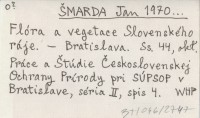 ŠMARDA Jan 1970...
Flóra a vegetace Slovenského
ráje. — Bratislava. Ss. 44,
Práce a Štúdie Československej
Ochrany Prírody pri SÚPSOP v
Bratislave, séria II, spis 4. WHP